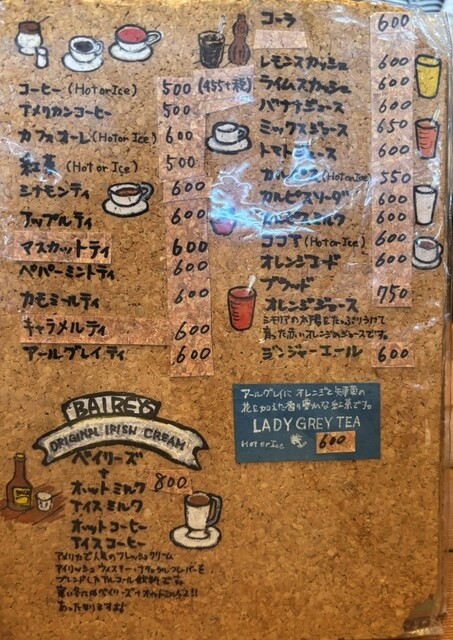 コーヒー (Hot or Ice) 500 (455+税)
アメリカンコーヒー 500
カフェオーレ (Hot or Ice) 600
紅茶 (Hot or Ice) 500
シナモンティ 600
アップルティ 600
マスカットティ 600
ペパーミントティ 600
カモミールティ 600
キャラメルティ 600
アールグレイティ 600
コーラ 600
レモンスカッシュ 600
ライムスカッシュ 600
バナナジュース 600
ミックスジュース 650
トマトジュース 600
カルピス (Hot or Ice) 550
カルピスソーダ 600
ミルク 600
ココア (Hot or Ice) 600
オレンジエード 600
ブラッド
オレンジジュース 750
シモリアの太陽をたっぷりうけて
育った赤いオレンジのジュースです。
ジンジャーエール 600
アールグレイに オレンジと矢車菊の
花を加えた香り豊かな紅茶です。
LADY GREY TEA
Hot or Ice 600
BAIREYS
ORIGINAL IRISH CREAM
ベイリーズ
+
ホットミルク 800
アイスミルク
ホットコーヒー
アイスコーヒー
アメリカで人気のフレッシュクリーム
アイリッシュウィスキー・フレーバーを
ブレンドしたアルコール飲料です。
寒い冬にはベイリーズ+ホットミルクで!!
あったまりますよ